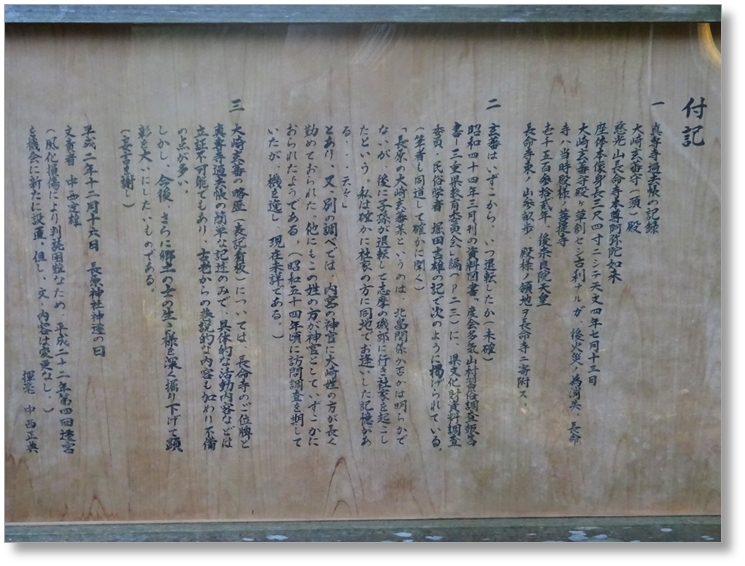 付記
一 真寿寺過去帳の記録
大崎玄蕃守(頭)殿
慈光山長命寺本尊阿弥陀如来
座体本像身丈三尺四寸ニシテ天文四年七月十三日
大崎玄蕃守殿ヶ草創セシ古刹ナルガ 後火災ノ為消失、長命
寺ハ当時殿様ノ菩提寺
壱千五百参拾弐年 後奈良院天皇
長命寺東ノ山参畝歩 殿様ノ領地ヲ長命寺ニ寄附ス
二 玄蕃はいずこから、いつ退転したか(未確)
昭和四十四年三月刊の資料図書、度会多気山村習俗調査報告
書(三重県教育委員会)編「P二三」に、県文化財資料調査
委員(民俗学者 堀田吉雄)の記で次のように掲げられている。
(筆者も同道して確かに聞く)
「長原の大崎玄蕃某というのは、北畠関係か否かは明らかで
ないが、後に子孫が退転して志摩の磯部に行き社家を起こし
たという。私は確かに社家の方に同地でお逢いした記憶があ
る・・・云々」
とあり、又、別の調べでは、内宮の神官に大崎姓の方が長く
勤めておられた。他にもこの姓の方が神官としていずこかに
おられたようである。(昭和五十四年頃に訪問調査を期して
いたが、機を逸し、現在未詳である。)
三 大崎玄蕃の略歴(表記看板)については、長命寺のご位牌と
真寿寺過去帳の簡単な記述のみで、具体的な活動内容などは
立証不可能でもあり、古老からの推説的な内容も加わり不備
の点が多い。
しかし、今後、さらに郷土の士の生き様を深く掘り下げて顕
彰を大いにしたいものである。
(妄言多謝)
平成二年十二月十六日 長原神社神遷の日
文責者 中西重雄
(風化損傷により判読困難なため、平成二十二年第四回遷宮
を機会に新たに設置。但し、文、内容は変更なし。)
揮毫 中西正典